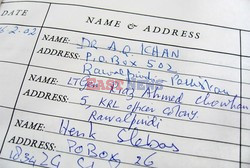 DATE
NAME & ADDRESS
2.02
NAME: DR A.Q. KHAN
ADDRESS: P.O. Box 502
Rawalpindi Pakistan
NAME: Ahmed Chowhan
ADDRESS: 5 KRL officer Colony
Rawalpindi
NAME: Henk Slebos
ADDRESS: PO BOX 26